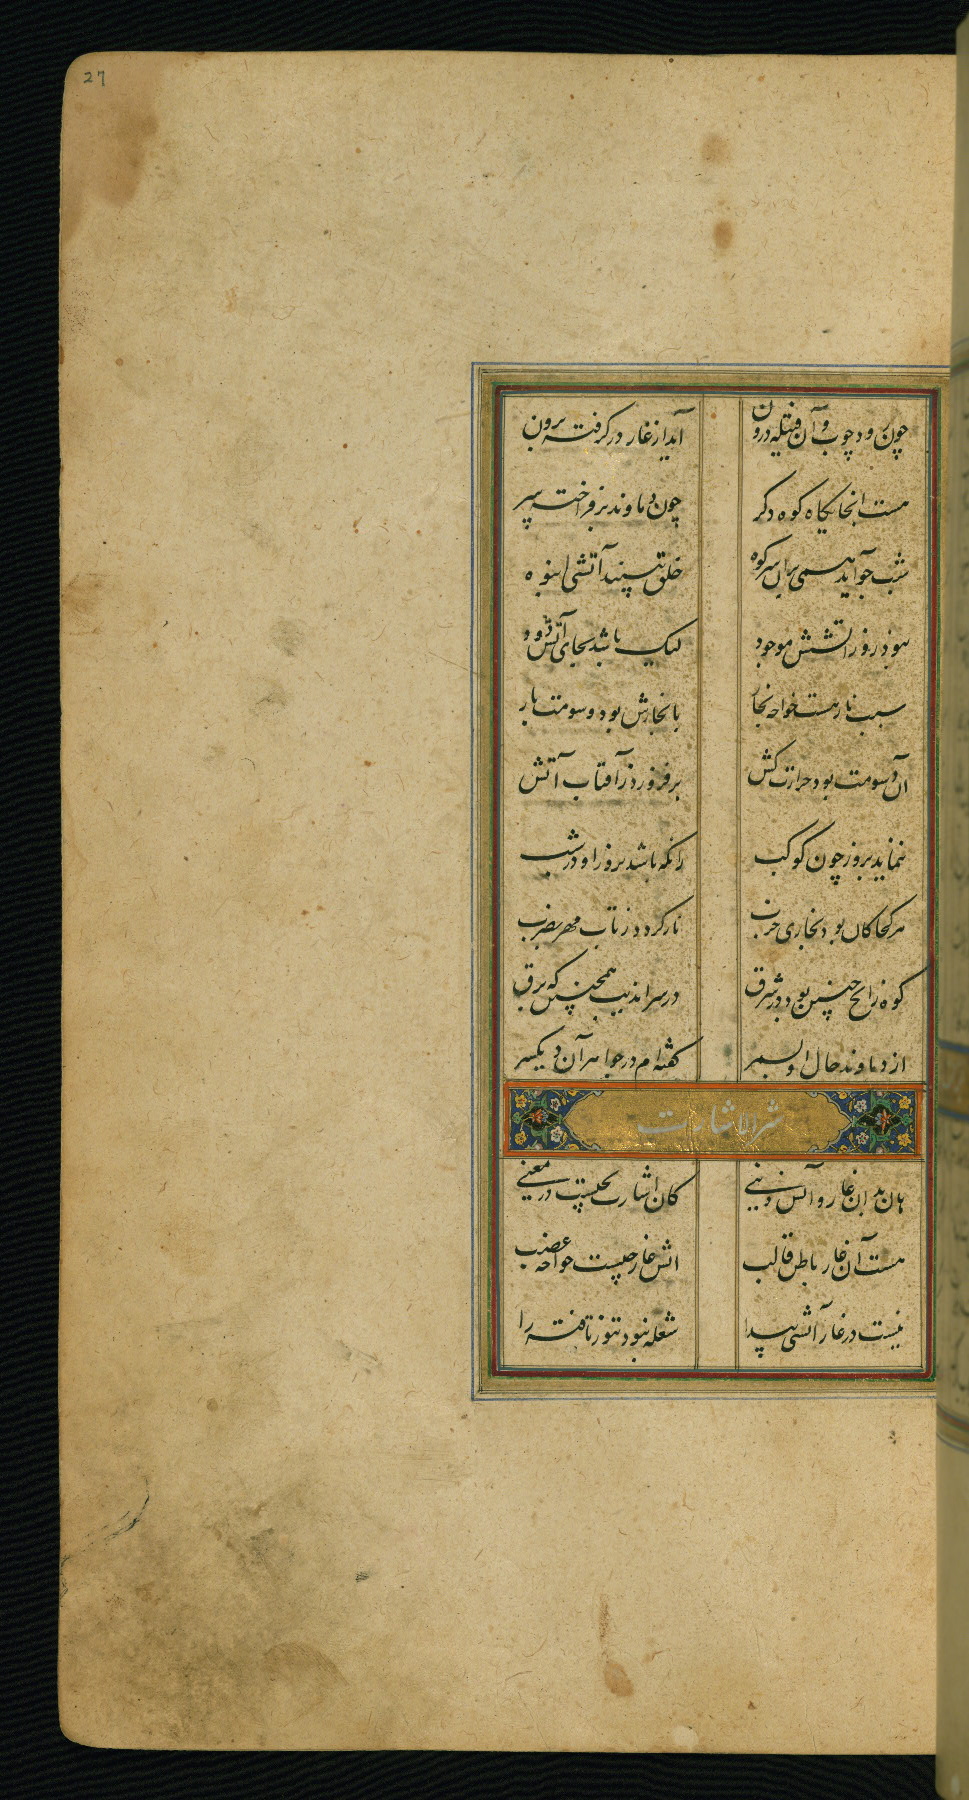 27
چون رود چوب و آن فتیله درون آید از غار در گرفته برون
هست انجایکاه کوه دکر چون دماوند بر فراخته سر
شب جو آید همی بران سر کوه خلق بینند آتشی انبوه
نبود روز اتشش موجود لیک باشد بجای آتش دود
سبب نار هست خواجه بخار با بخارش بود دسومت بار
آن دسومت بود حرارت کش بر فروزد ز آفتاب آتش
ننماید بروز چون کوکب زانکه باشد بروز او در شب
هر کجا کان بود بخاری خرب نار کردد ز تاب مهر بضرب
کوه زانج چنین بود در شرق در سراندیب همچنین که برق
از دماوند حال او بسمر کفته ام در جواهر آن دیکسر
شرط اشارت
هان بدان غار و آتش دنیی کان اشارت بچیست در معنی
هست آن غار باطن قالب اتش غار چیست خواجه غضب
نیست در غار آتشی پیدا شعله نبود تنوز تافته را